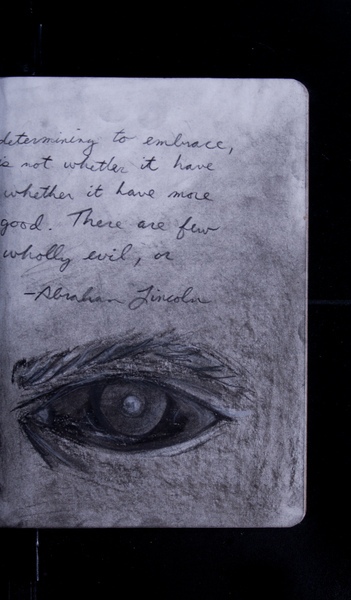 determining to embrace,
is not whether it have
whether it have more
good. There are few
wholly evil, or
-Abraham Lincoln